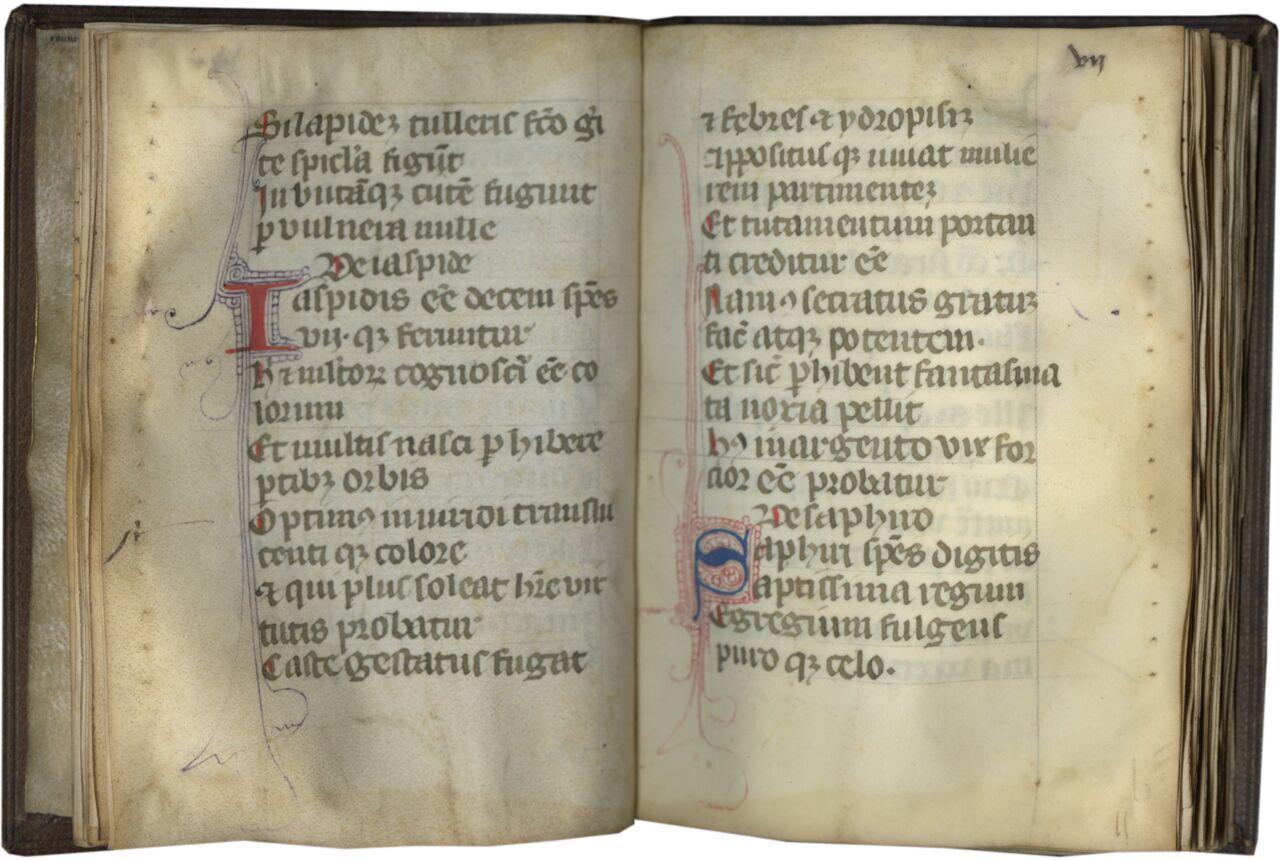 Si lapidez tulletis fc̄o gͥ
te spicl'a figūt
In vnītāqꝫ cutē fugiunt
ꝑ vulnera mille
De iaspide
Iaspidis eē̄ decem spēs
vii· qꝫ feruntur
Hͭ mltoꝝ cognoscī eē̄ co
lorum
Et multis nasci ꝑhibete
ꝑtibꝫ orbis
Optimꝰ in viridi translu
centi qꝫ colore
⁊ qui plus soleat hr̄e vir
tutis probatur
Caste gestatus fugat
vij
⁊ febres ⁊ ydropisiꝫ
Appositus qꝫ iuuat mulie
rem parturientez
Et tutamentum portan
ti creditur eē̄
Nam ꝯsecratus gratuꝫ
fac̄ atqꝫ potentem·
Et sic̄ ꝑhibent fantasma
ta noxia pellit
Hꝰ in argento vix for
cior eē̄ probatur
De saphiro
Saphiri spēs digitis
aptissima regum
Egregium fulgens
puro qꝫ celo·
11